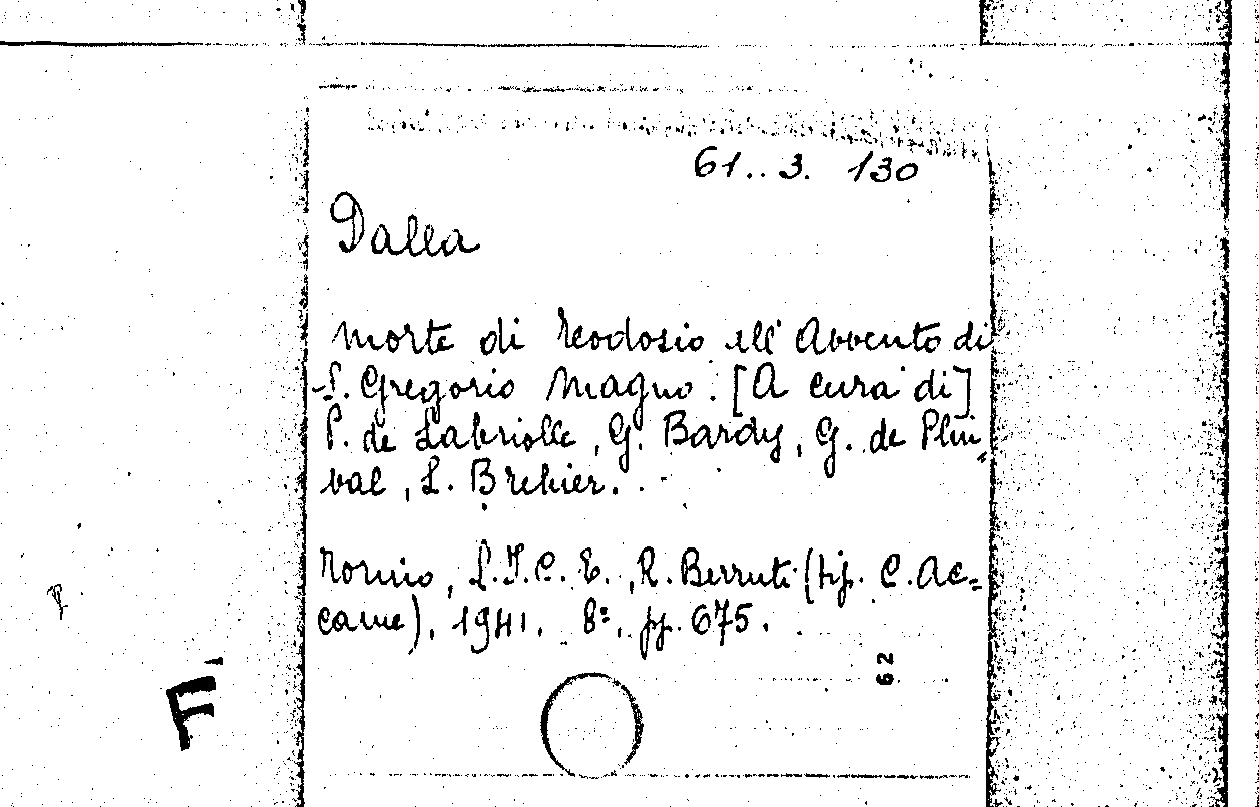 61..3. 130
Dalla
morte di Teodosio all'Avvento di
S. Gregorio Magno. [A cura di]
P. de Labriolle, G. Bardy, G. de Plin-
val, L. Brehier.
Torino, S.I.C.E., R. Berruti (tip. C. Ac-
came), 1941. 8º, pp. 675.
62
F